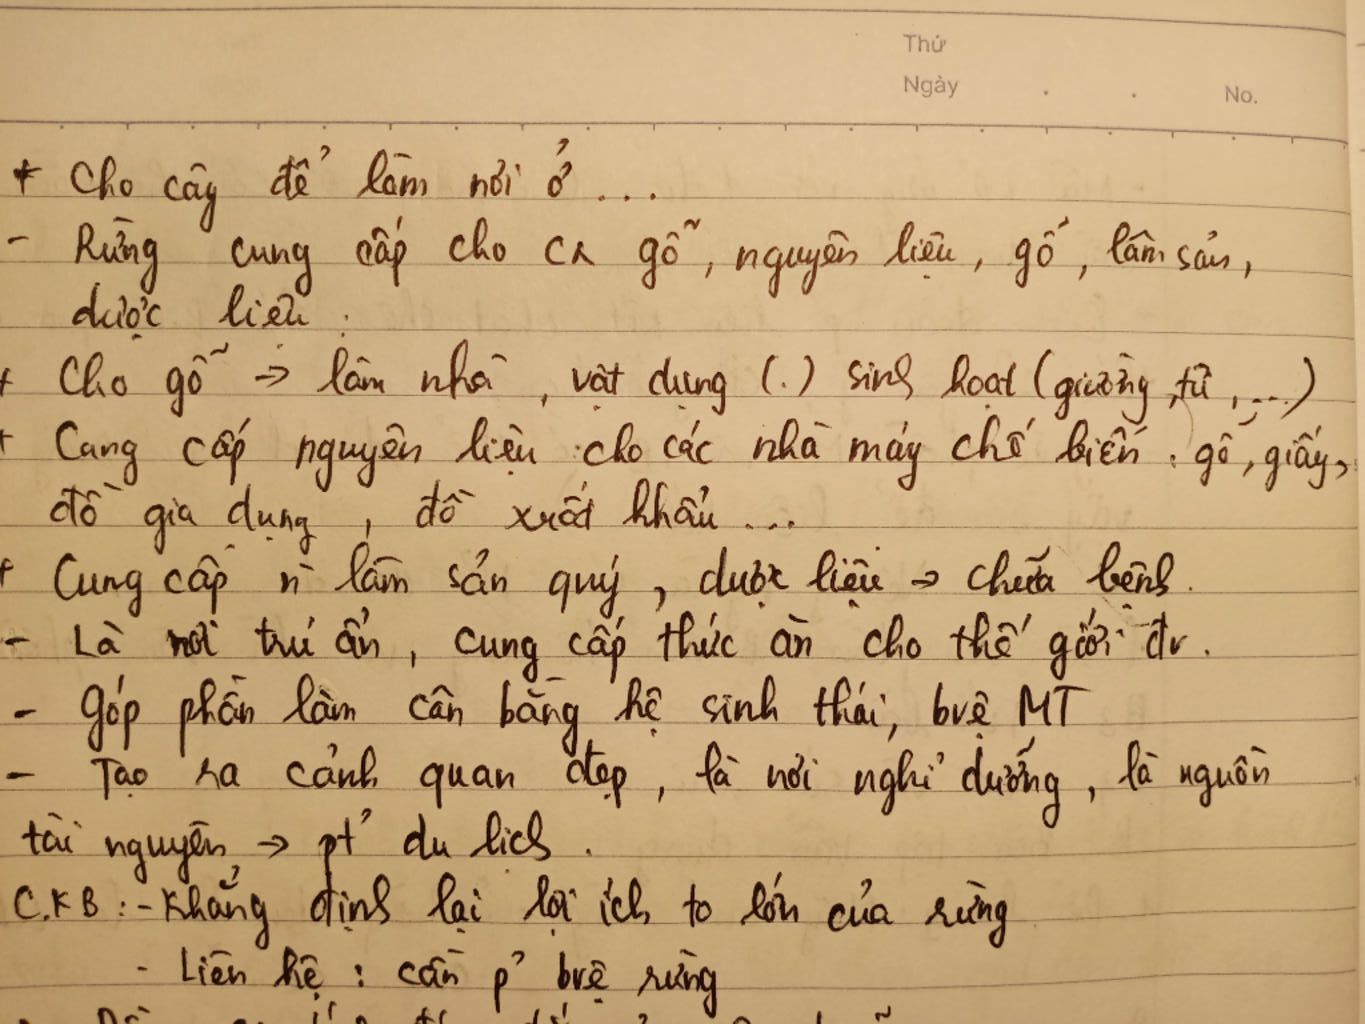 Thứ
Ngày . . No.
+ Cho cây để làm nơi ở ...
- Rừng cung cấp cho gỗ, nguyên liệu, gỗ, lâm sản,
dược liệu.
+ Cho gỗ → làm nhà, vật dụng (.) sinh hoạt (giường, tủ, ...)
+ Cung cấp nguyên liệu cho các nhà máy chế biến: gỗ, giấy,
đồ gia dụng, đồ xuất khẩu ...
+ Cung cấp n` lâm sản quý, dược liệu → chữa bệnh.
- Là nơi trú ẩn, cung cấp thức ăn cho thế giới đv.
- Góp phần làm cân bằng hệ sinh thái, bvệ MT
- Tạo ra cảnh quan đẹp, là nơi nghỉ dưỡng, là nguồn
tài nguyên → pt' du lịch.
C.KB: - Khẳng định lại lợi ích to lớn của rừng
- Liên hệ: cần p' bvệ rừng